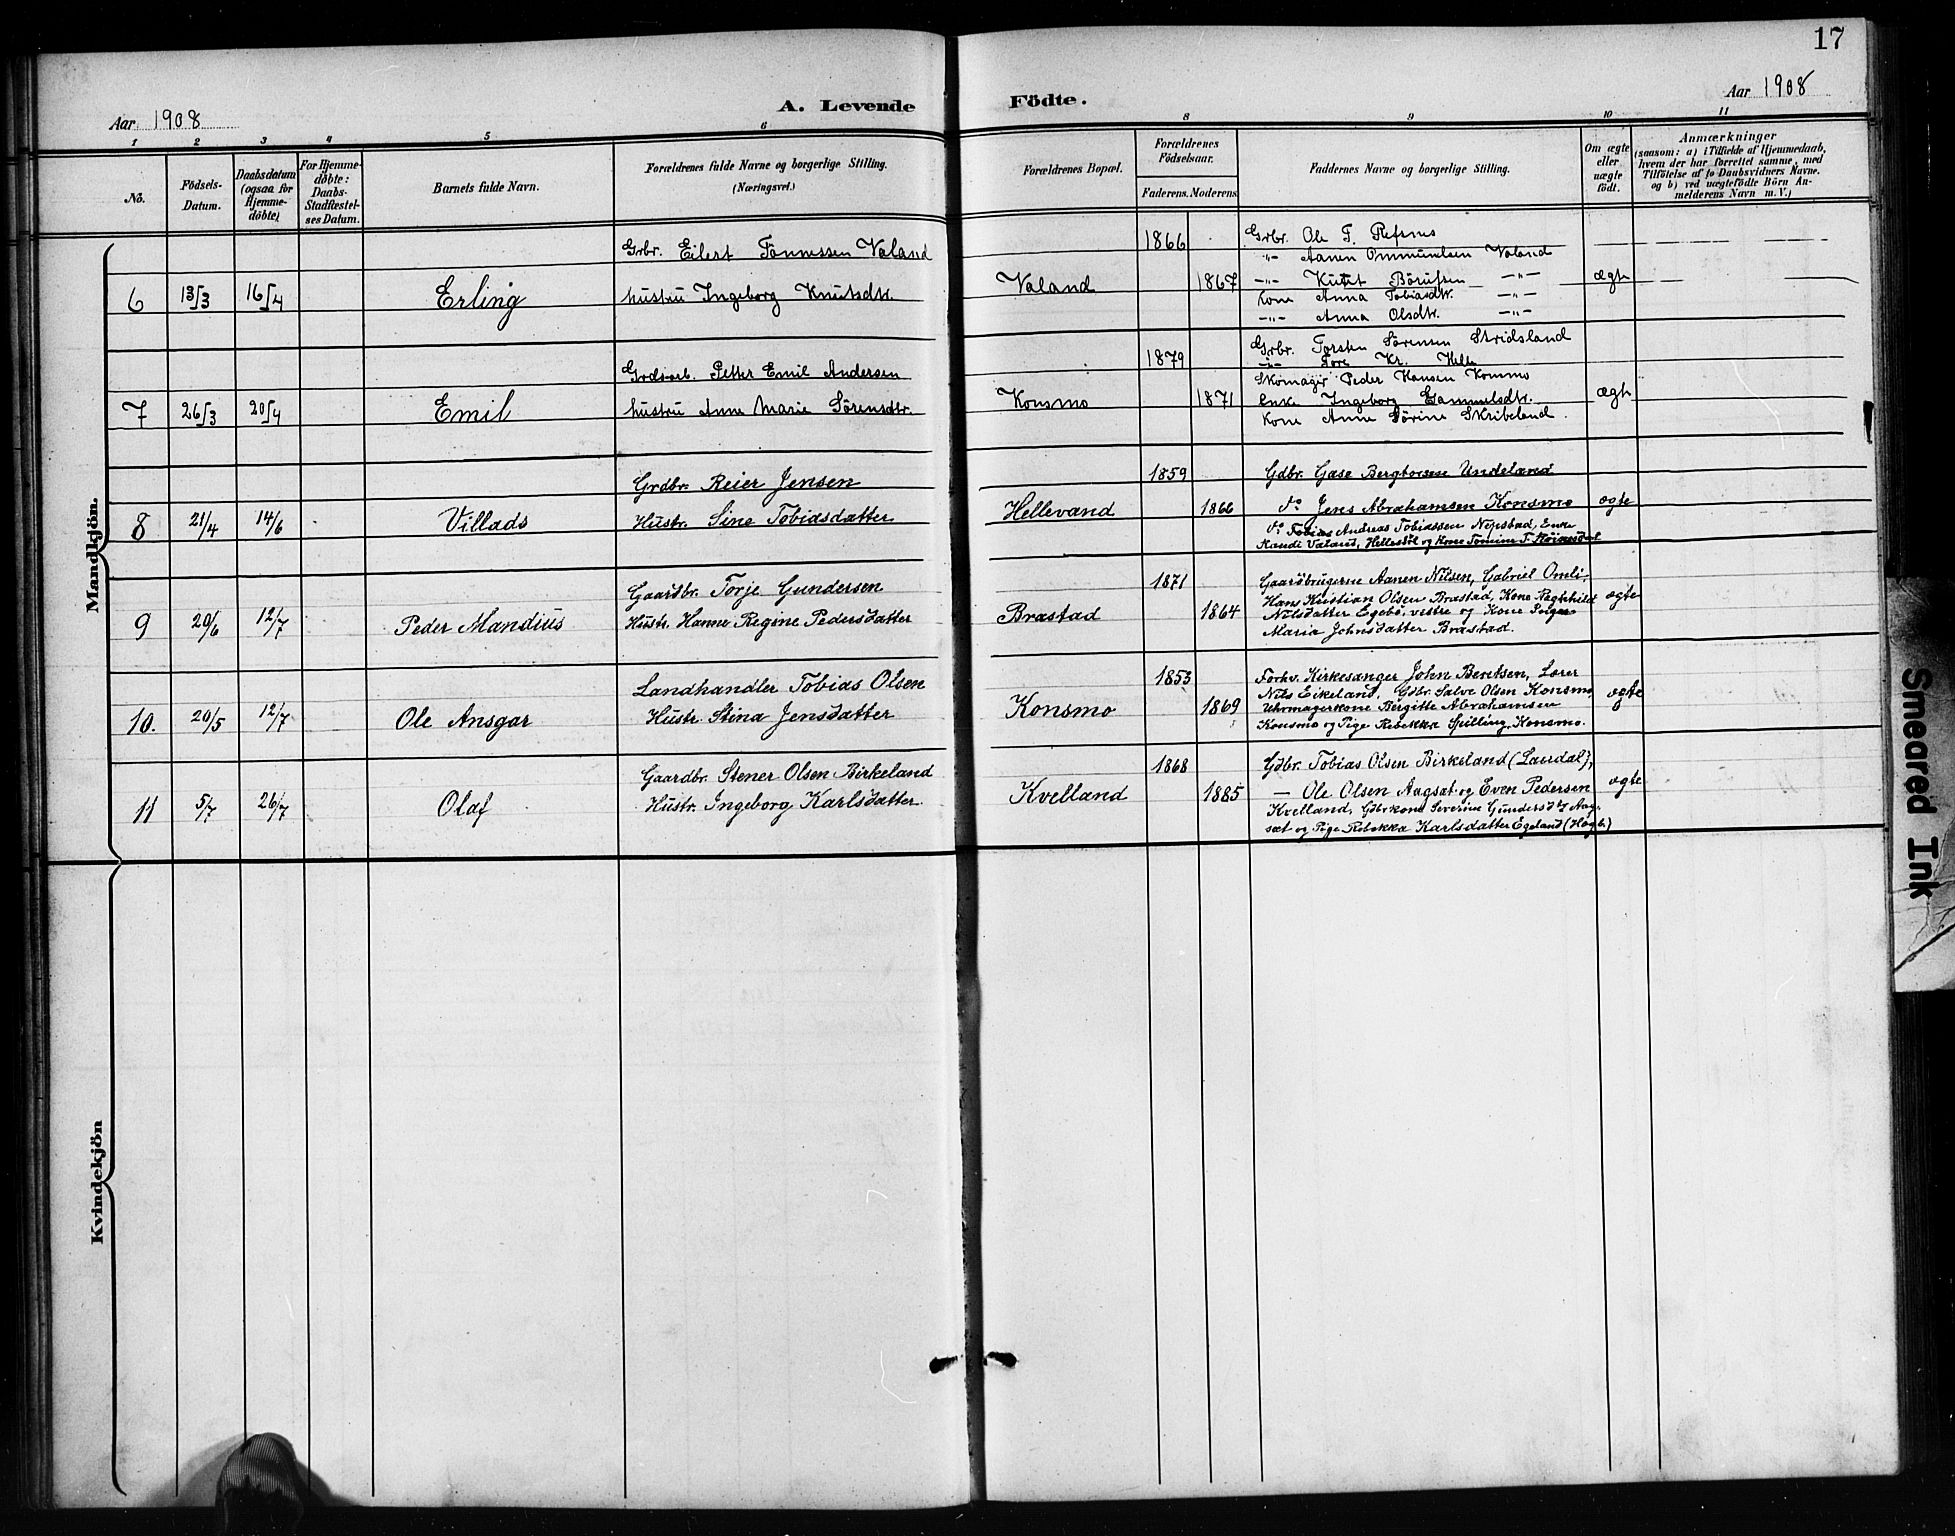 17
Aar 1908
A. Levende
Födte.
Aar 1908
1 2 3 4 5 6 8 9 10 11
No.
Födsels-
Datum.
Daabsdatum
(ogsaa for
Hjemme-
döbte)
For Hjemme-
döbte:
Daabs-
Stadfæstel-
ses Datum.
Barnets fulde Navn.
Forældrenes fulde Navne og borgerlige Stilling.
(Næringsvei.)
Forældrenes Bopæl.
Forældrenes
Födselsaar.
Faderens. Moderens.
Faddernes Navne og borgerlige Stilling.
Om ægte
eller
uægte
födt.
Anmærkninger
(saasom: a) i Tilfælde af Hjemmedaab,
hvem der har forrettet samme, med
Tilföielse af to Daabsvidners Navne.
og b) ved uægtefödte Börn An-
melderens Navn m.V.)
Mandkjön.
6 13/3 16/4 Erling
Grbr. Eilert Tönnessen Valand
hustru Ingeborg Knutsdtr.
Valand 1866 1867
Grbr. Ole T. Refsnes
-"- Aanen Ommundsen Valand
-"- Knut Börufsen -"-
Kone Anna Tobiasdtr. -"-
-"- Anna Olsdtr. -"-
ægte
7 26/3 20/4 Emil
Grdsarb. Petter Emil Andersen
hustru Anne Marie Sörensdtr.
Konsmo 1879 1871
Grbr. Torsten Sörensen Skridsland
-"- Tore Kr. Helle
Skomager Peder Hansen Konsmo
Enke Ingeborg Gammelsdtr.
Kone Anne Sörine Skribeland.
ægte
8 21/4 14/6 Villads
Grdbr. Reier Jensen
Hustr. Sine Tobiasdatter
Hellevand 1859 1866
Gdbr. Gase Bergtorsen Undeland
do Jens Abrahamsen Konsmo
do Tobias Andreas Tobiassen Nepstad, Enke
Randi Valand, Hellesdöl og Kone Tomine T.
ægte
9 20/6 12/7 Peder Mandius
Gaardbr. Torje Gundersen
Hustr. Hanne Regine Pedersdatter
Brastad 1871 1864
Gaardbrugerne Aanen Nilsen, Gabriel Omli,
Hans Kristian Olsen Brastad, Kone Raghnhild
Nilsdatter Egebö, vestre og Kone
Maria Johnsdatter Brastad.
ægte
10. 20/5 12/7 Ole Ansgar
Landhandler Tobias Olsen
Hustr. Stina Jensdatter
Konsmo 1853 1869
Forhv. Kirkesanger John Berntsen, Lærer
Nils Eikeland, Gdbr. Salve Olsen Konsmo,
Uhrmagerkone Bergitte Abrahamsen
Konsmo og Pige Rebekka Spilling, Konsmo.
ægte
11 5/7 26/7 Olaf
Gaardbr. Stener Olsen Birkeland
Hustr. Ingeborg Karlsdatter
Kvelland 1868 1885
Gdbr. Tobias Olsen Birkeland (Laudal),
— Ole Olsen Aagsæt og Even Pedersen
Kvelland, Gdbrkone Severine Gundersdtr Aag-
sæt og Pige Rebekka Karlsdatter Egeland (Hægb.)
ægte
Kvindekjön
Smeared Ink